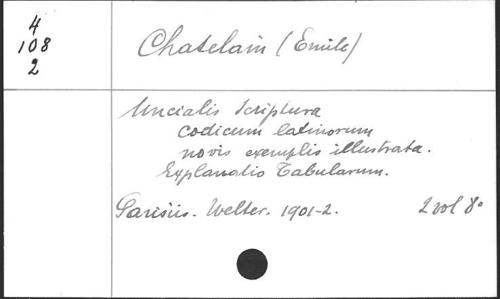 4
108
2
Chatelain (Emile)
Uncialis Scriptura
codicum latinorum
novis exemplis illustrata.
Explanatio Tabularum.
Parisiis. Welter. 1901-2. 2 vol 8°